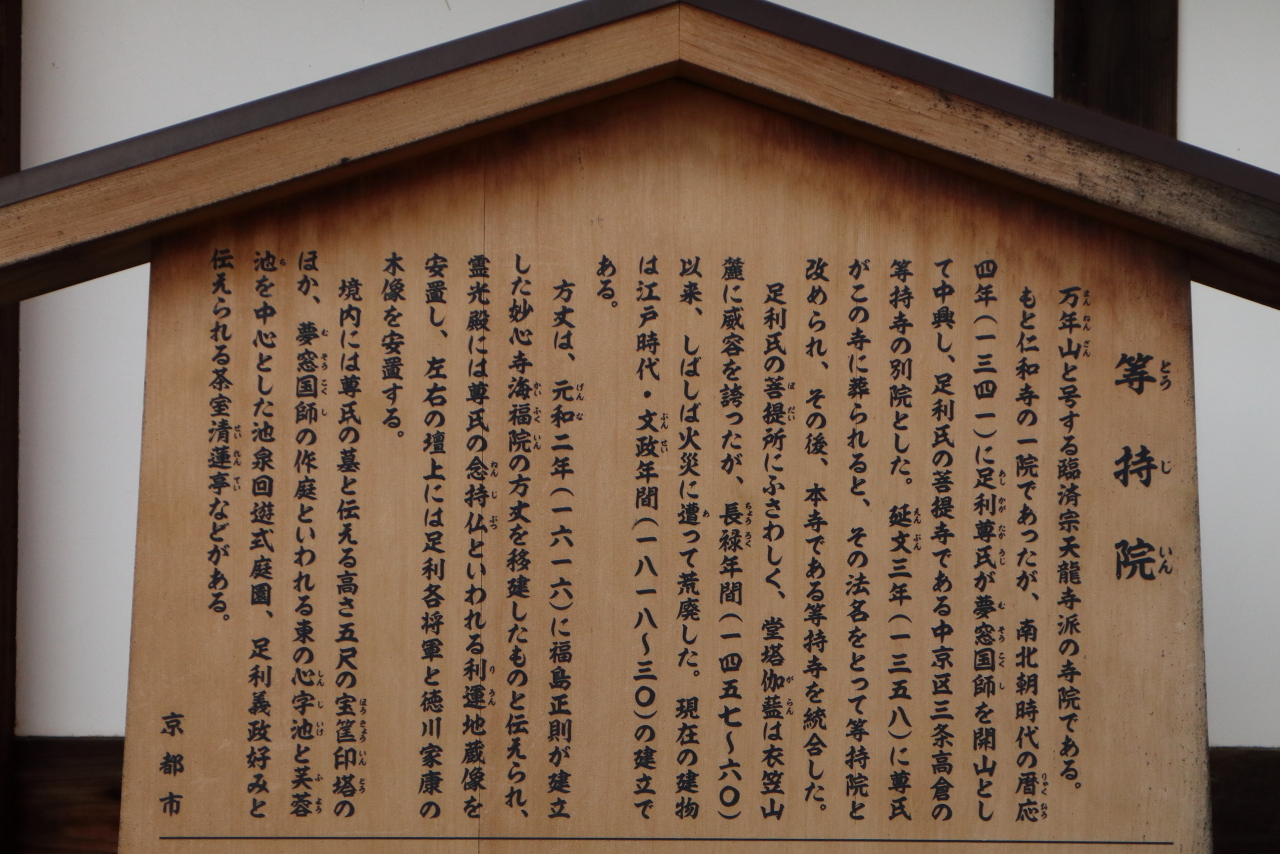 等持院
とうじいん
万年山と号する臨済宗天龍寺派の寺院である。
まんねんざん
もと仁和寺の一院であったが、南北朝時代の暦応
りゃくおう
四年(一三四一)に足利尊氏が夢窓国師を開山とし
あしかがたかうじ むそうこくし
て中興し、足利氏の菩提寺である中京区三条高倉の
等持寺の別院とした。延文三年(一三五八)に尊氏
えんぶん
がこの寺に葬られると、その法名をとって等持院と
改められ、その後、本寺である等持寺を統合した。
足利氏の菩提所にふさわしく、堂塔伽藍は衣笠山
ぼだい がらん
麓に威容を誇ったが、長禄年間(一四五七〜六〇)
ちょうろく
以来、しばしば火災に遭って荒廃した。現在の建物
あ
は江戸時代・文政年間(一八一八〜三〇)の建立で
ぶんせい
ある。
方丈は、元和二年(一六一六)に福島正則が建立
げんな
した妙心寺海福院の方丈を移建したものと伝えられ、
かいふくいん
霊光殿には尊氏の念持仏といわれる利運地蔵像を
ねんじぶつ りうん
安置し、左右の壇上には足利各将軍と徳川家康の
木像を安置する。
境内には尊氏の墓と伝える高さ五尺の宝筐印塔の
ほうきょういんとう
ほか、夢窓国師の作庭といわれる東の心字池と芙蓉
むそうこくし しんじいけ ふよう
池を中心とした池泉回遊式庭園、足利義政好みと
ち
伝えられる茶室清蓮亭などがある。
せいれんてい
京都市